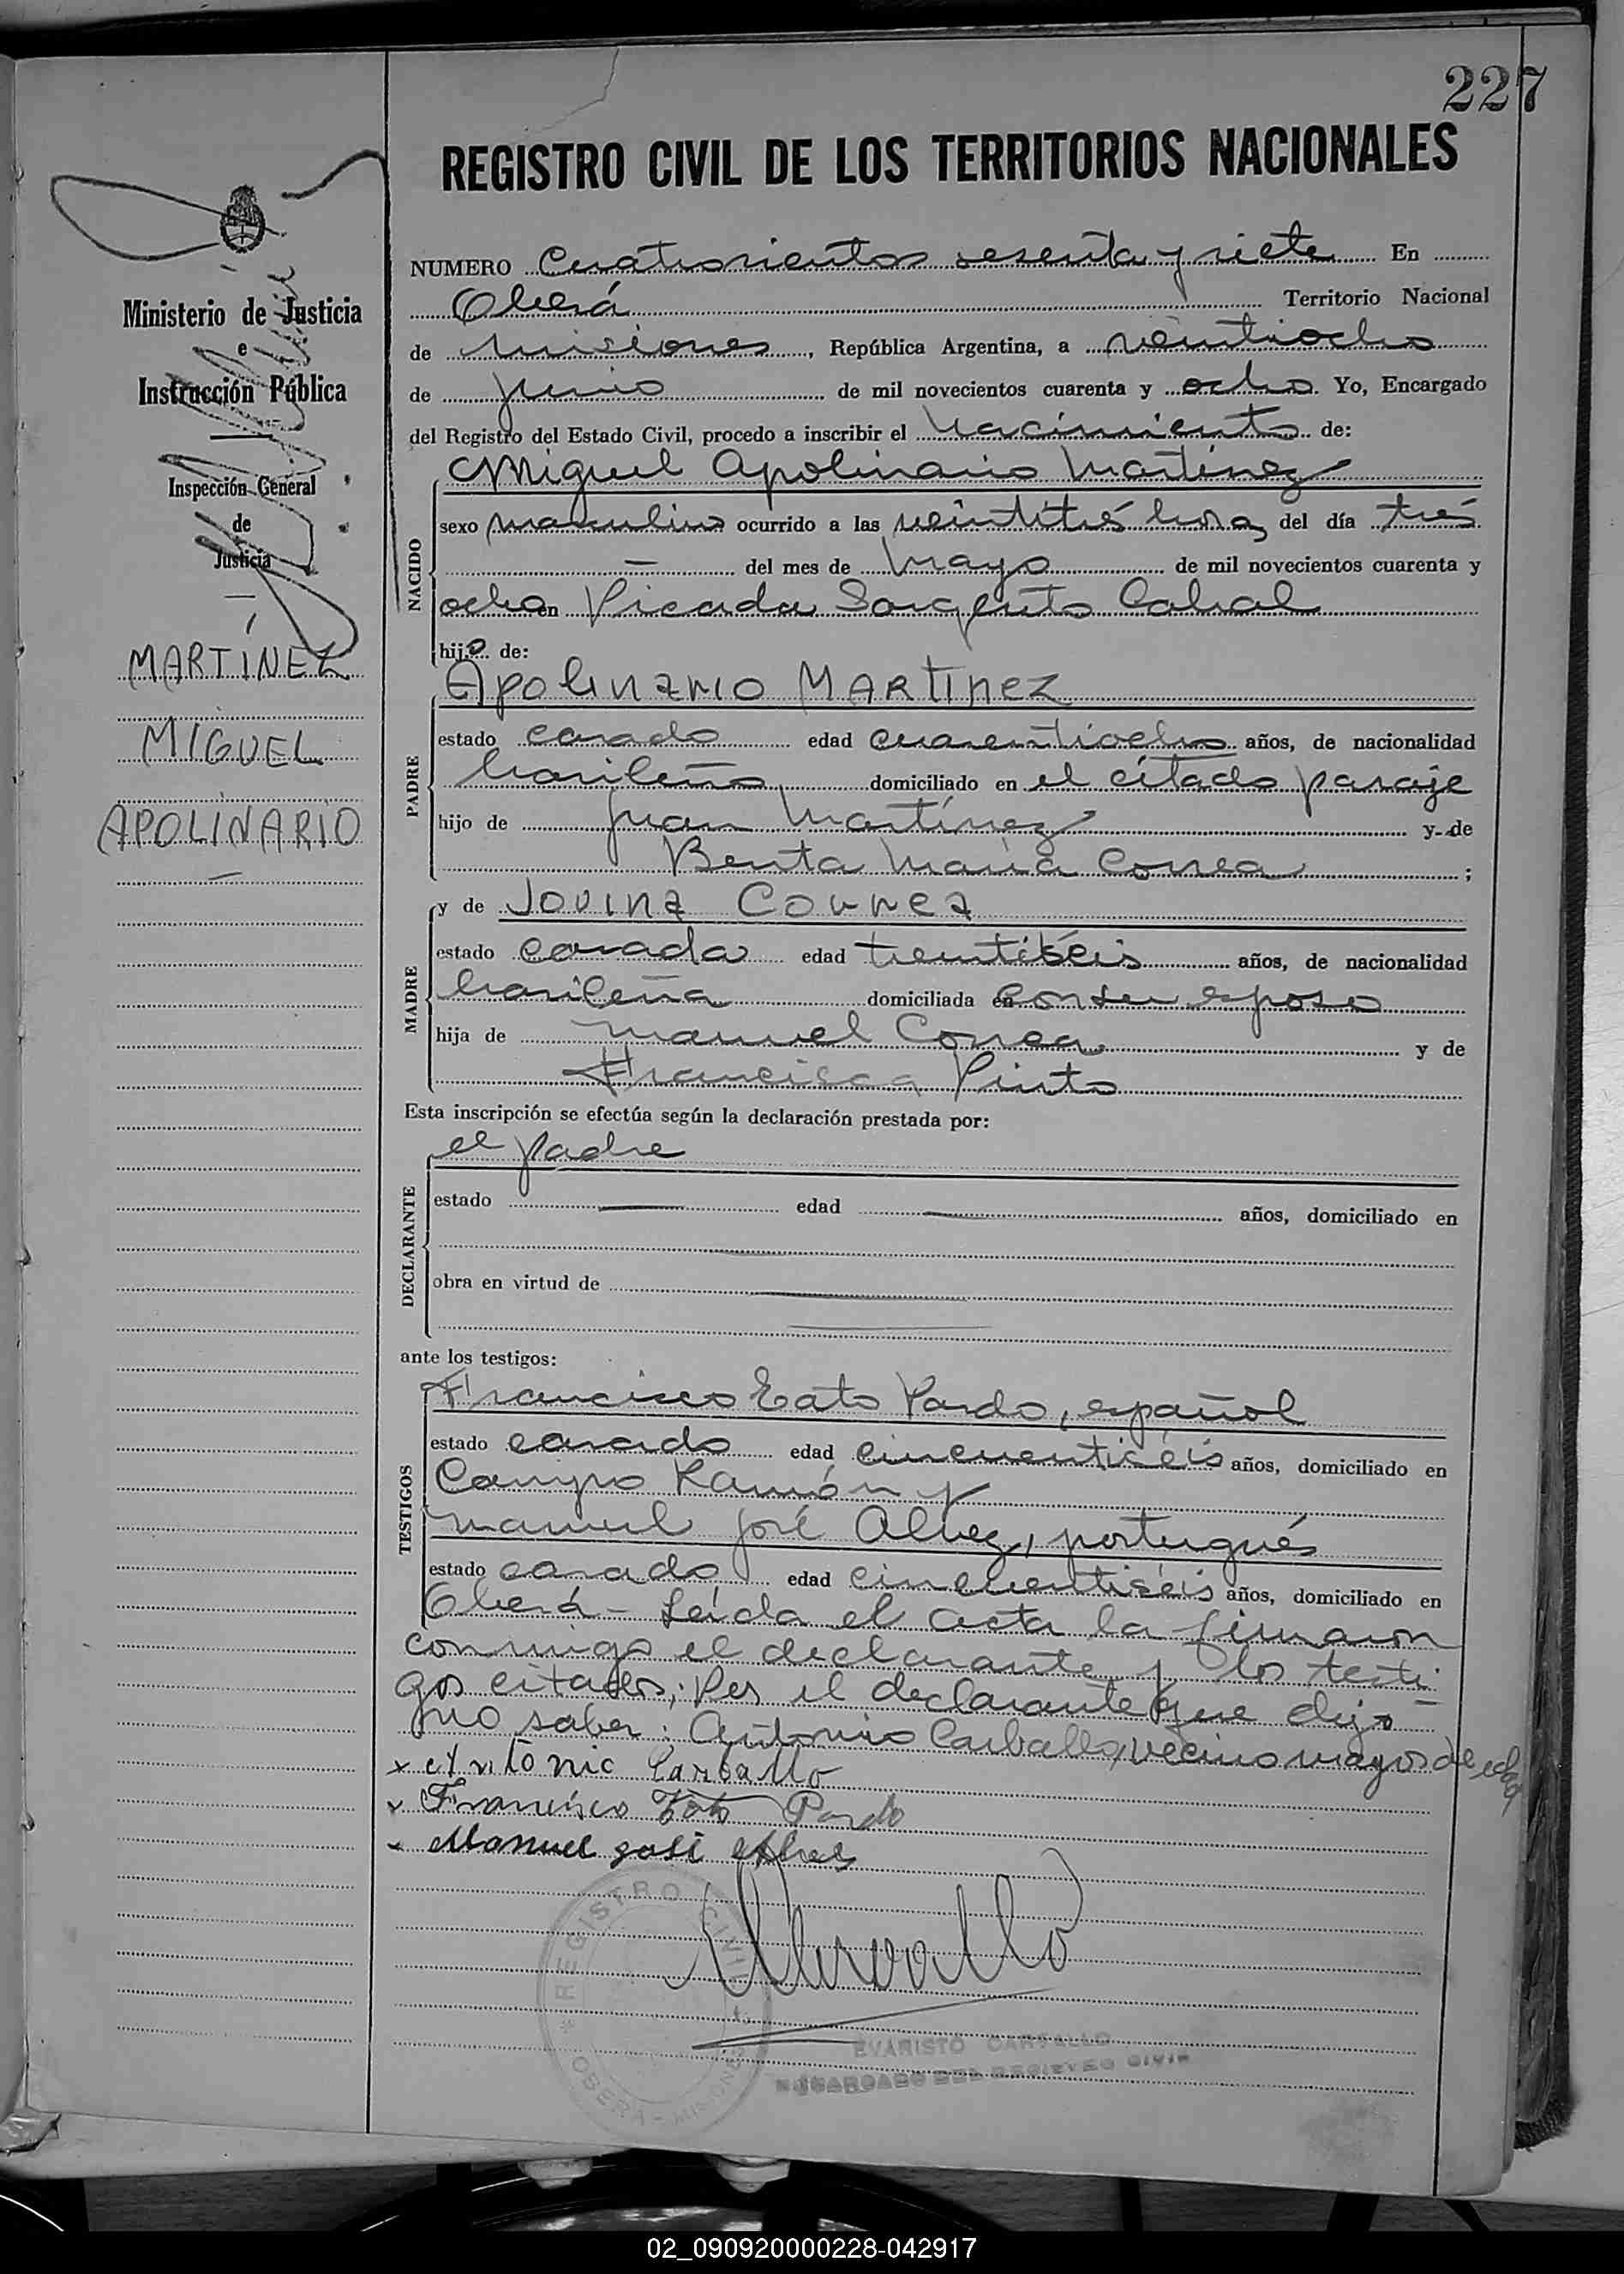 227
REGISTRO CIVIL DE LOS TERRITORIOS NACIONALES
Ministerio de Justicia
e
Instrucción Pública
Inspección General
de
Justicia
MARTÍNEZ
MIGUEL
APOLINARIO
NUMERO Cuatrocientos sesenta y siete En
Oberá Territorio Nacional
de Misiones, República Argentina, a veintiocho
de junio de mil novecientos cuarenta y ocho. Yo, Encargado
del Registro del Estado Civil, procedo a inscribir el Nacimiento de:
NACIDO
Miguel Apolinario Martínez
sexo masculino ocurrido a las veintitrés horas del día trés
— del mes de Mayo de mil novecientos cuarenta y
ocho en Picada Sargento Cabral
hijo de:
PADRE
Apolinario MARTINEZ
estado casado edad cuarentiocho años, de nacionalidad
brasileño domiciliado en el citado paraje
hijo de Juan Martínez y de
Benta María Correa ;
MADRE
y de Jovina Correa
estado casada edad treintiséis años, de nacionalidad
brasileña domiciliada en con su esposo
hija de Manuel Correa y de
Francisca Pinto
Esta inscripción se efectúa según la declaración prestada por:
DECLARANTE
el padre
estado — edad — años, domiciliado en
obra en virtud de
ante los testigos:
TESTIGOS
Francisco Tato Pardo, español
estado casado edad cincuentiséis años, domiciliado en
Campo Ramón y
Manuel José Alvez, portugués
estado casado edad cincuentiséis años, domiciliado en
Oberá - Leída el acta la firmaron
conmigo el declarante y los testi-
gos citados; Por el declarante que dijo
no saber: Antonio Carballo, vecino mayor de edad
x Antonio Carballo
x Francisco Tato Pardo
x Manuel José Alves
REGISTRO CIVIL
OBERÁ - MISIONES
EVARISTO CARVALLO
ENCARGADO DEL REGISTRO CIVIL
02_090920000228-042917